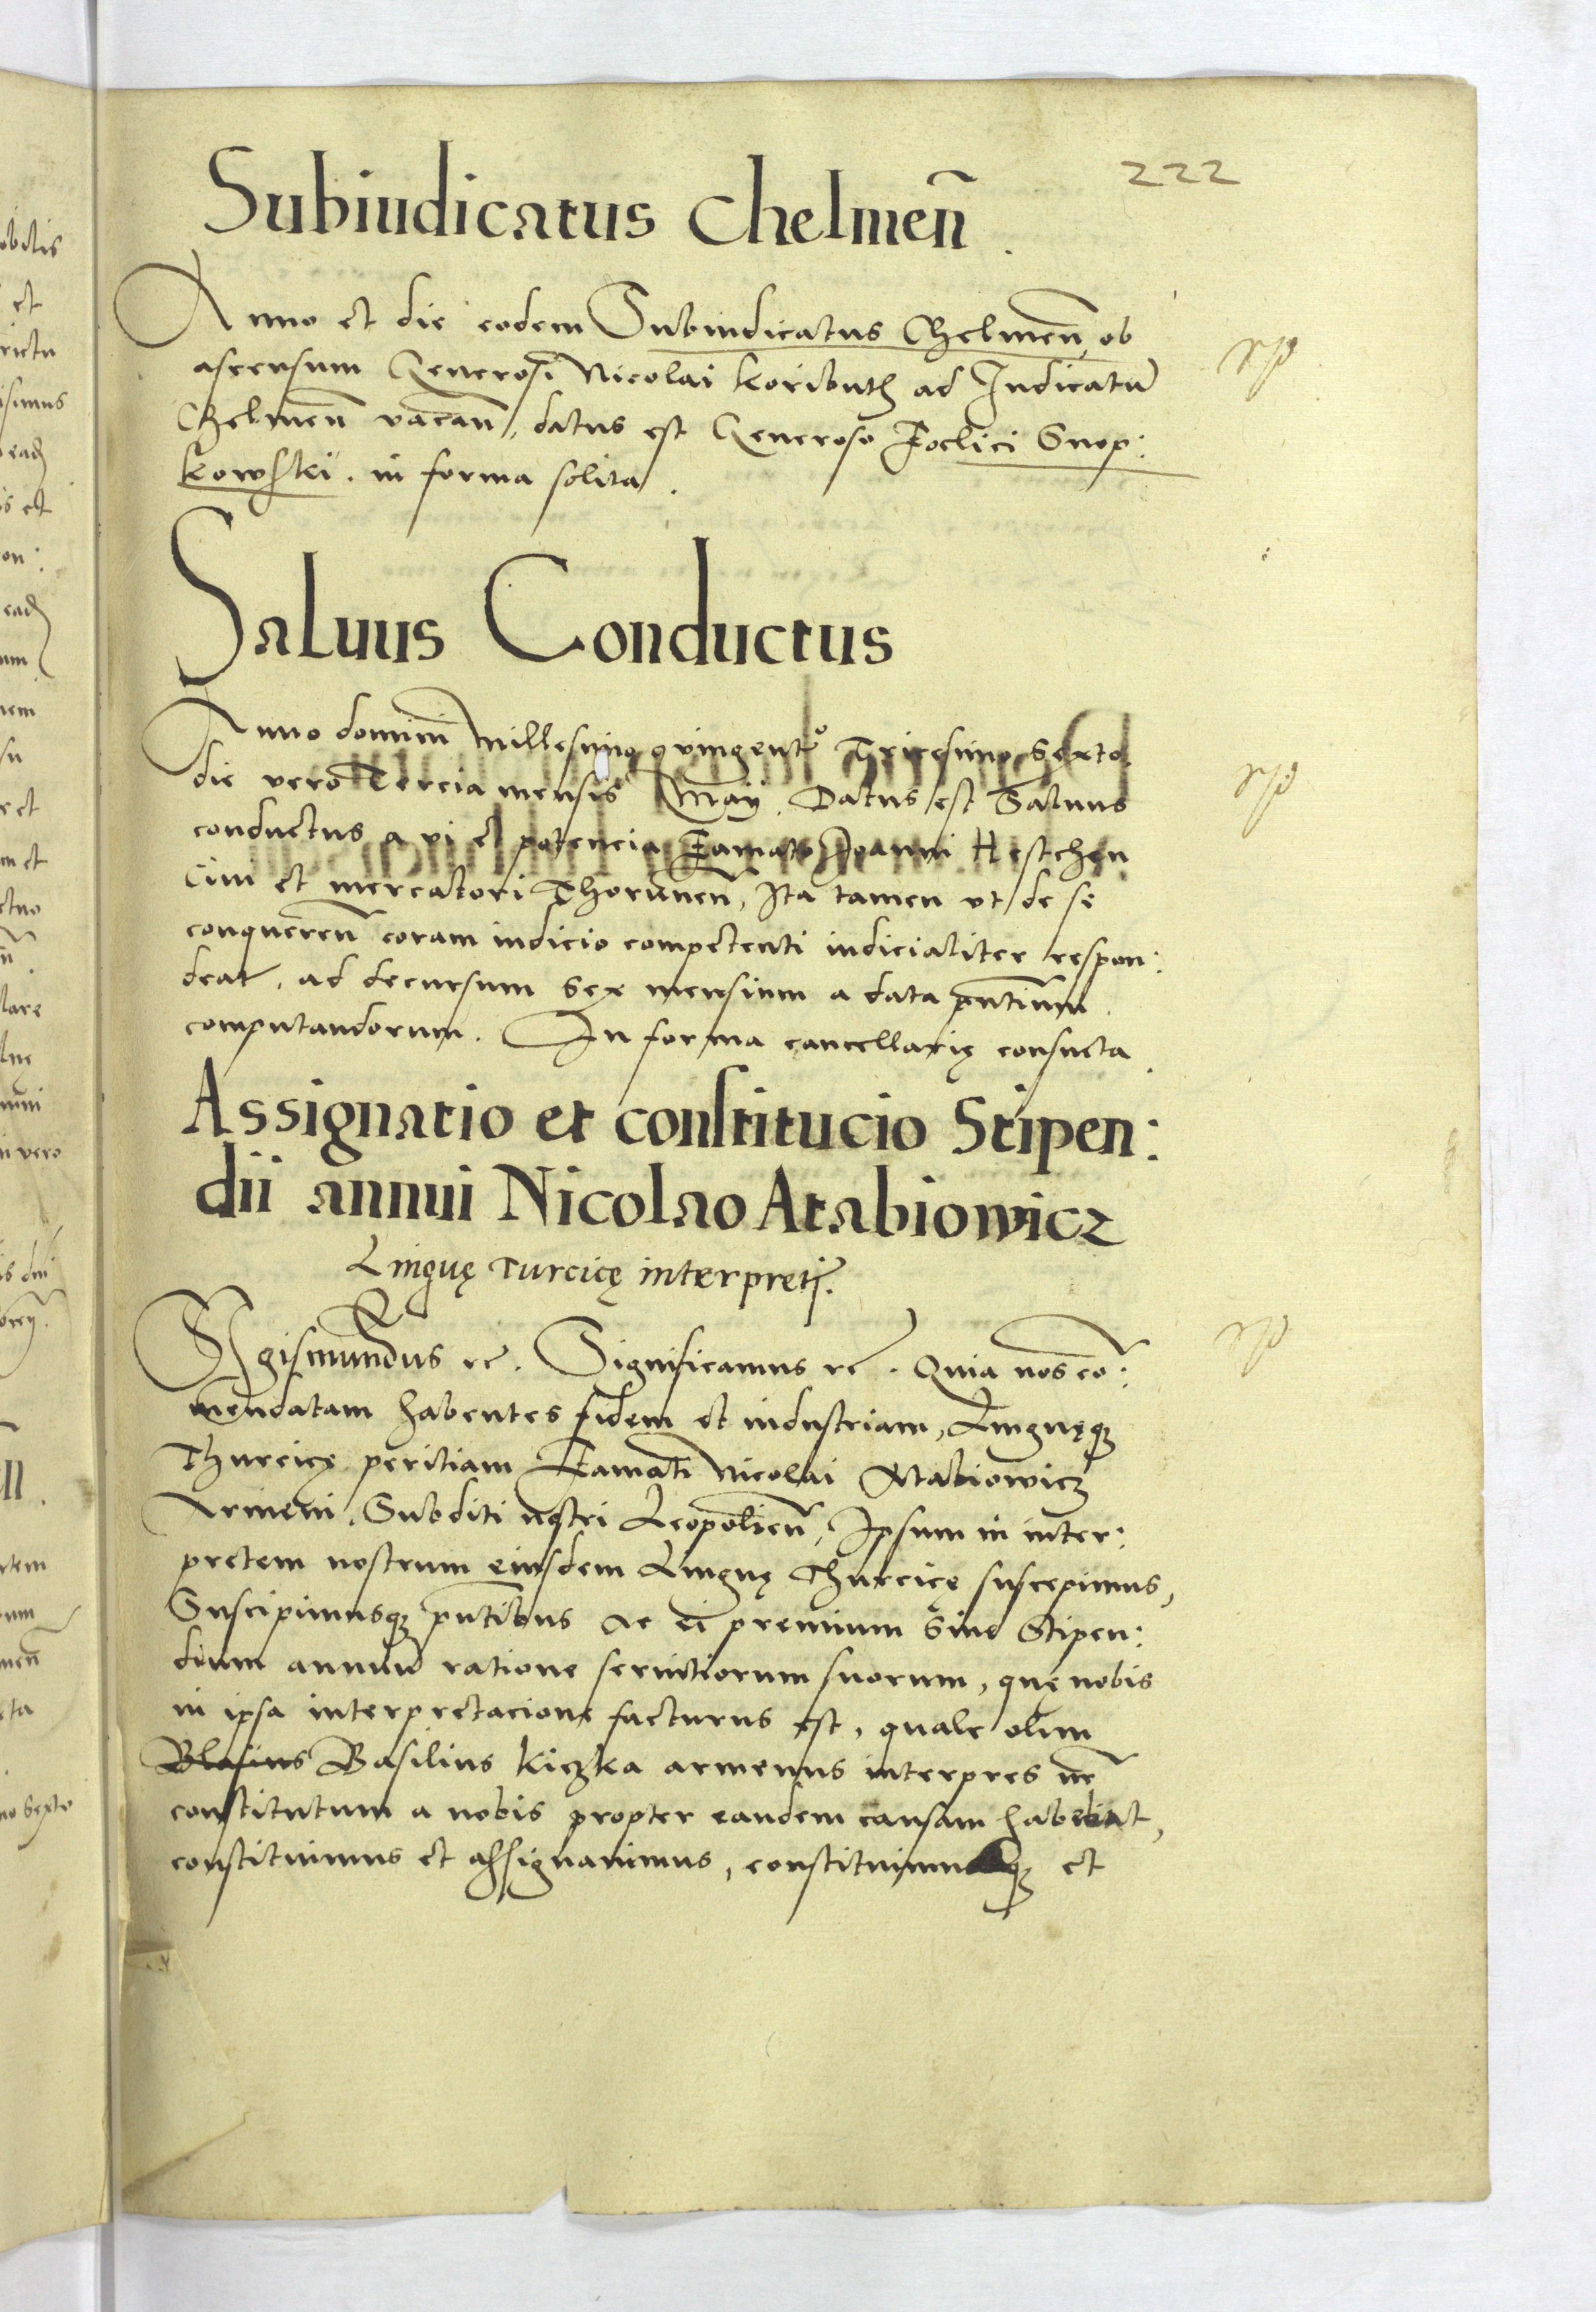 222
Subiudicatus Chelmeñ.
Anno et die eodem Subiudicatus Chelmeñ, ob
ascensum Generosi Nicolai Koributh ad Iudicatũ
Chelmeñ vacañ, datus est Generoso Foelici Snop:
kowski. in forma solita.
Saluus Conductus
Anno domini Millesimo quingentº Tricesimo Sexto.
die vero Tercia mensis Maÿ. Datus est Saluus
conductus a vi et potencia Famato Joanni Hestchen
Ciui et mercatori Thoruneñ, Ita tamen vt de se
conquereñ coram iudicio competenti iudicialiter respon:
deat, ad decursum sex mensium a data pñtium
computandorum. In forma cancellarię consueta.
Assignatio et constitucio Stipen:
dii annui Nicolao Atabiowicz
Linguę Turcicę interpreti.
Sigismundus rc. Significamus rc. Quia nos cõ:
mendatam habentes fidem et industriam, Linguęqȝ
Thurcicę peritiam Famati Nicolai Atabiowicz
Armeni, Subditi nostri Leopolieñ, Ipsum in inter:
pretem nostrum eiusdem Linguę Thurcicę suscepimus,
Suscipimusqȝ pñtibus Ac ei premium siue Stipen:
dium annuũ ratione seruitiorum suorum, quę nobis
in ipsa interpretacione facturus est, quale olim
Blasius Basilius Kiczka armenus interpres nr̃
constitutum a nobis propter eandem causam habebat,
constituimus et assignauimus, constituimusqȝ et